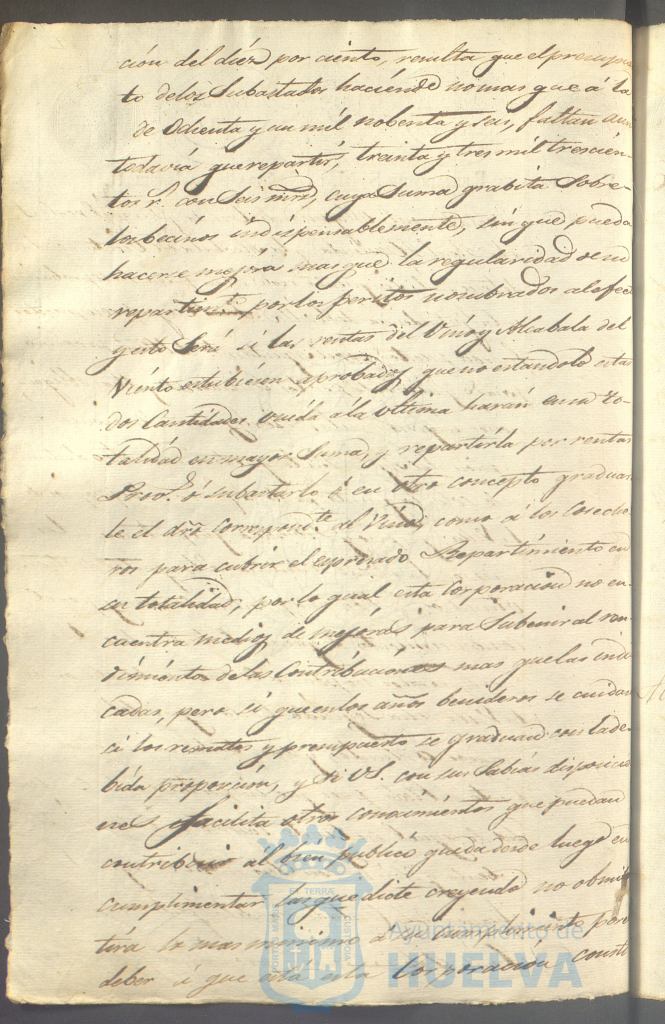 ción del diéz por ciento, resulta que el presupues
to delos Subastados haciénde no mas que á la
de Ochenta y un mil nobenta y seis, faltan aun
todavia que repartir, treinta y tres mil trescién-
tos r. con seis mrs, cuya suma grabita Sobre-
los becinos indispensablemente, sin que pueda
hacerse mejora mas que la regularidad en su
repartimto por los peritos nombrados al efecto
y esto Será si las rentas del Vino y Alcabala del
Viento estubiésen aprobadas, que no estandolo estas
dos Cantidades unida á la ultima harán en su to-
talidad mayor Suma, y repartirla por rentas
Prov.s ó subastarlo ó en otro concepto graduar
le el dro correspondte al Vino, como á los Coseche
ros para cubrir el expresado Repartimiento en
su totalidad, por lo qual esta Corporación no en-
cuentra medios de mejoras para Subenir al ren
dimiento de las Contribuciones mas que las indi
cadas, pero si que en los años benideros se cuidará
si los remates y presupuesto se graduan con la de-
bida proporción, y si V.S. con sus Sabias disposicio
nes facilita otros conocimientos que puedan
contribuir al bien publico queda desde luego en
cumplimentar las que dicte creyendo no obmi
tirá lo mas minimo á su cumplimiento por el
deber á que está esta Corporación consti
PORTUS MARIS ET TERRÆ CUSTODIA
Ayuntamiento de
HUELVA